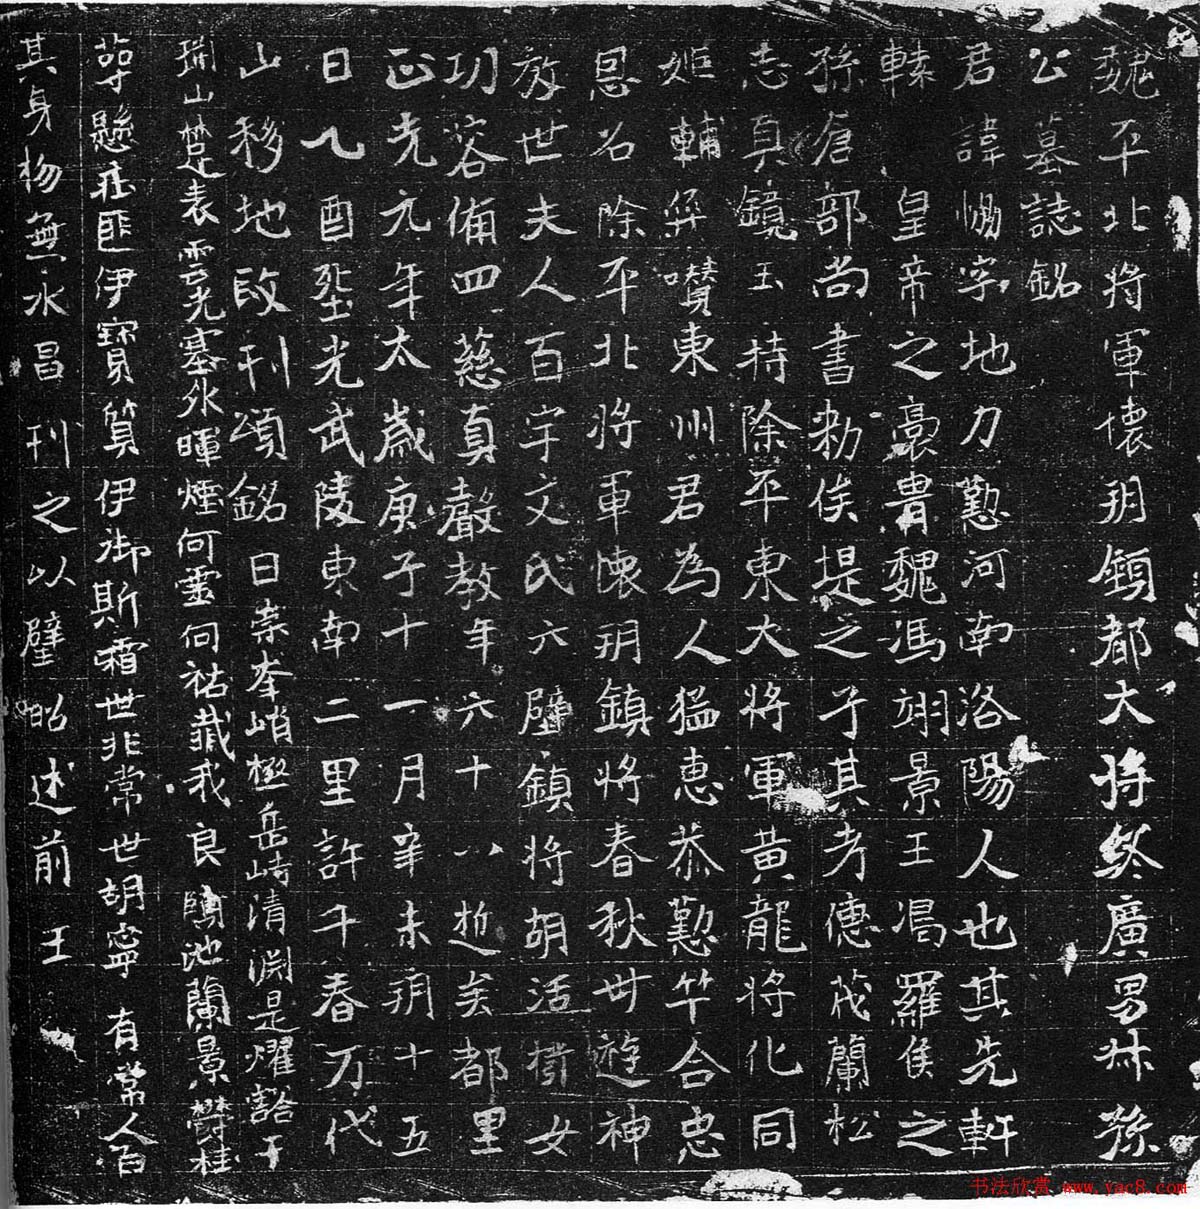 魏平北將軍懷朔鎮都大將終廣男叔孫
公墓誌銘
君諱協字地力懃河南洛陽人也其先軒
轅皇帝之裔胄魏馮翊景王渴羅侯之
孫倉部尚書勑俟堤之子其考德茂蘭松
志真鏡玉特除平東大將軍黃龍將化同
姬輔彝囋東州君為人猛惠恭懃竿合忠
恩名除平北將軍懷玥鎮將春秋丗遊神
方世夫人百宇文氏六壁鎮將胡活女
功容備四慈真聲教年六十八逝矣都里
正光元年太歲庚子十一月辛未玥十五
日乙酉埊光武陵東南二里許千春万代
山移地改刊頌銘曰崇峯峭極岳峙清淵是燿谿干
瑚山楚表雲光塞外暉煙何靈何祐戴我良隤池蘭景欝桂
夢懸疰匪伊寶算伊御斯霜世非常世胡寧有常人百
其身物無永昌刊之以壁昭述前王
书法欣赏 www.yac8.com